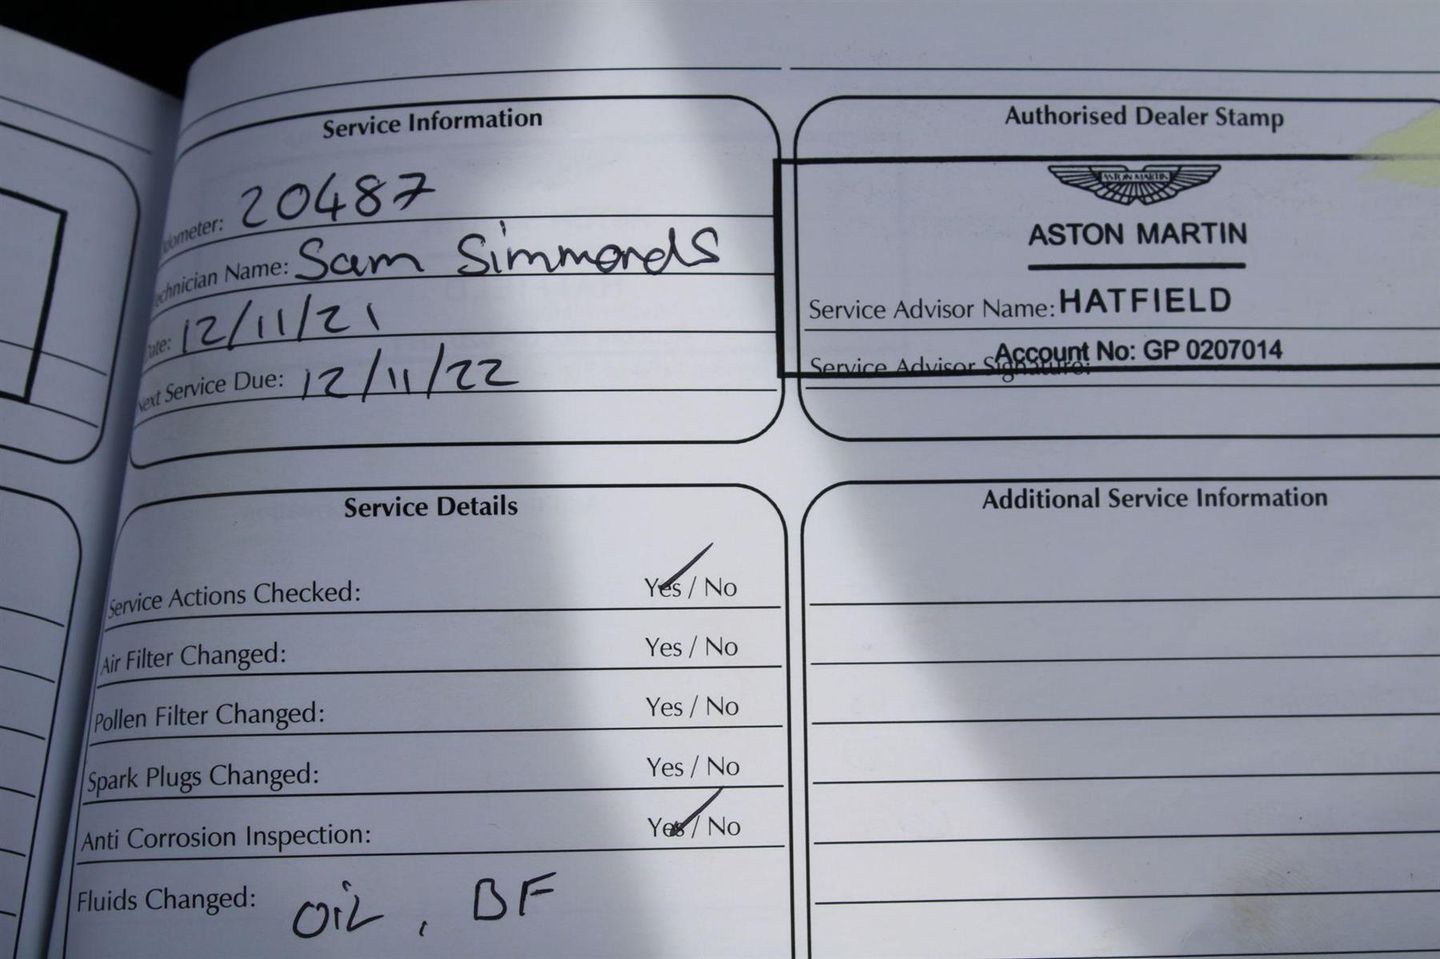 Service Information
Odometer: 20487
Technician Name: Sam Simmonds
Date: 12/11/21
Next Service Due: 12/11/22
Authorised Dealer Stamp
ASTON MARTIN
ASTON MARTIN
Service Advisor Name: HATFIELD
Account No: GP 0207014
Service Advisor Signature:
Service Details
Service Actions Checked: Yes / No
Air Filter Changed: Yes / No
Pollen Filter Changed: Yes / No
Spark Plugs Changed: Yes / No
Anti Corrosion Inspection: Yes / No
Fluids Changed: OIL , BF
Additional Service Information